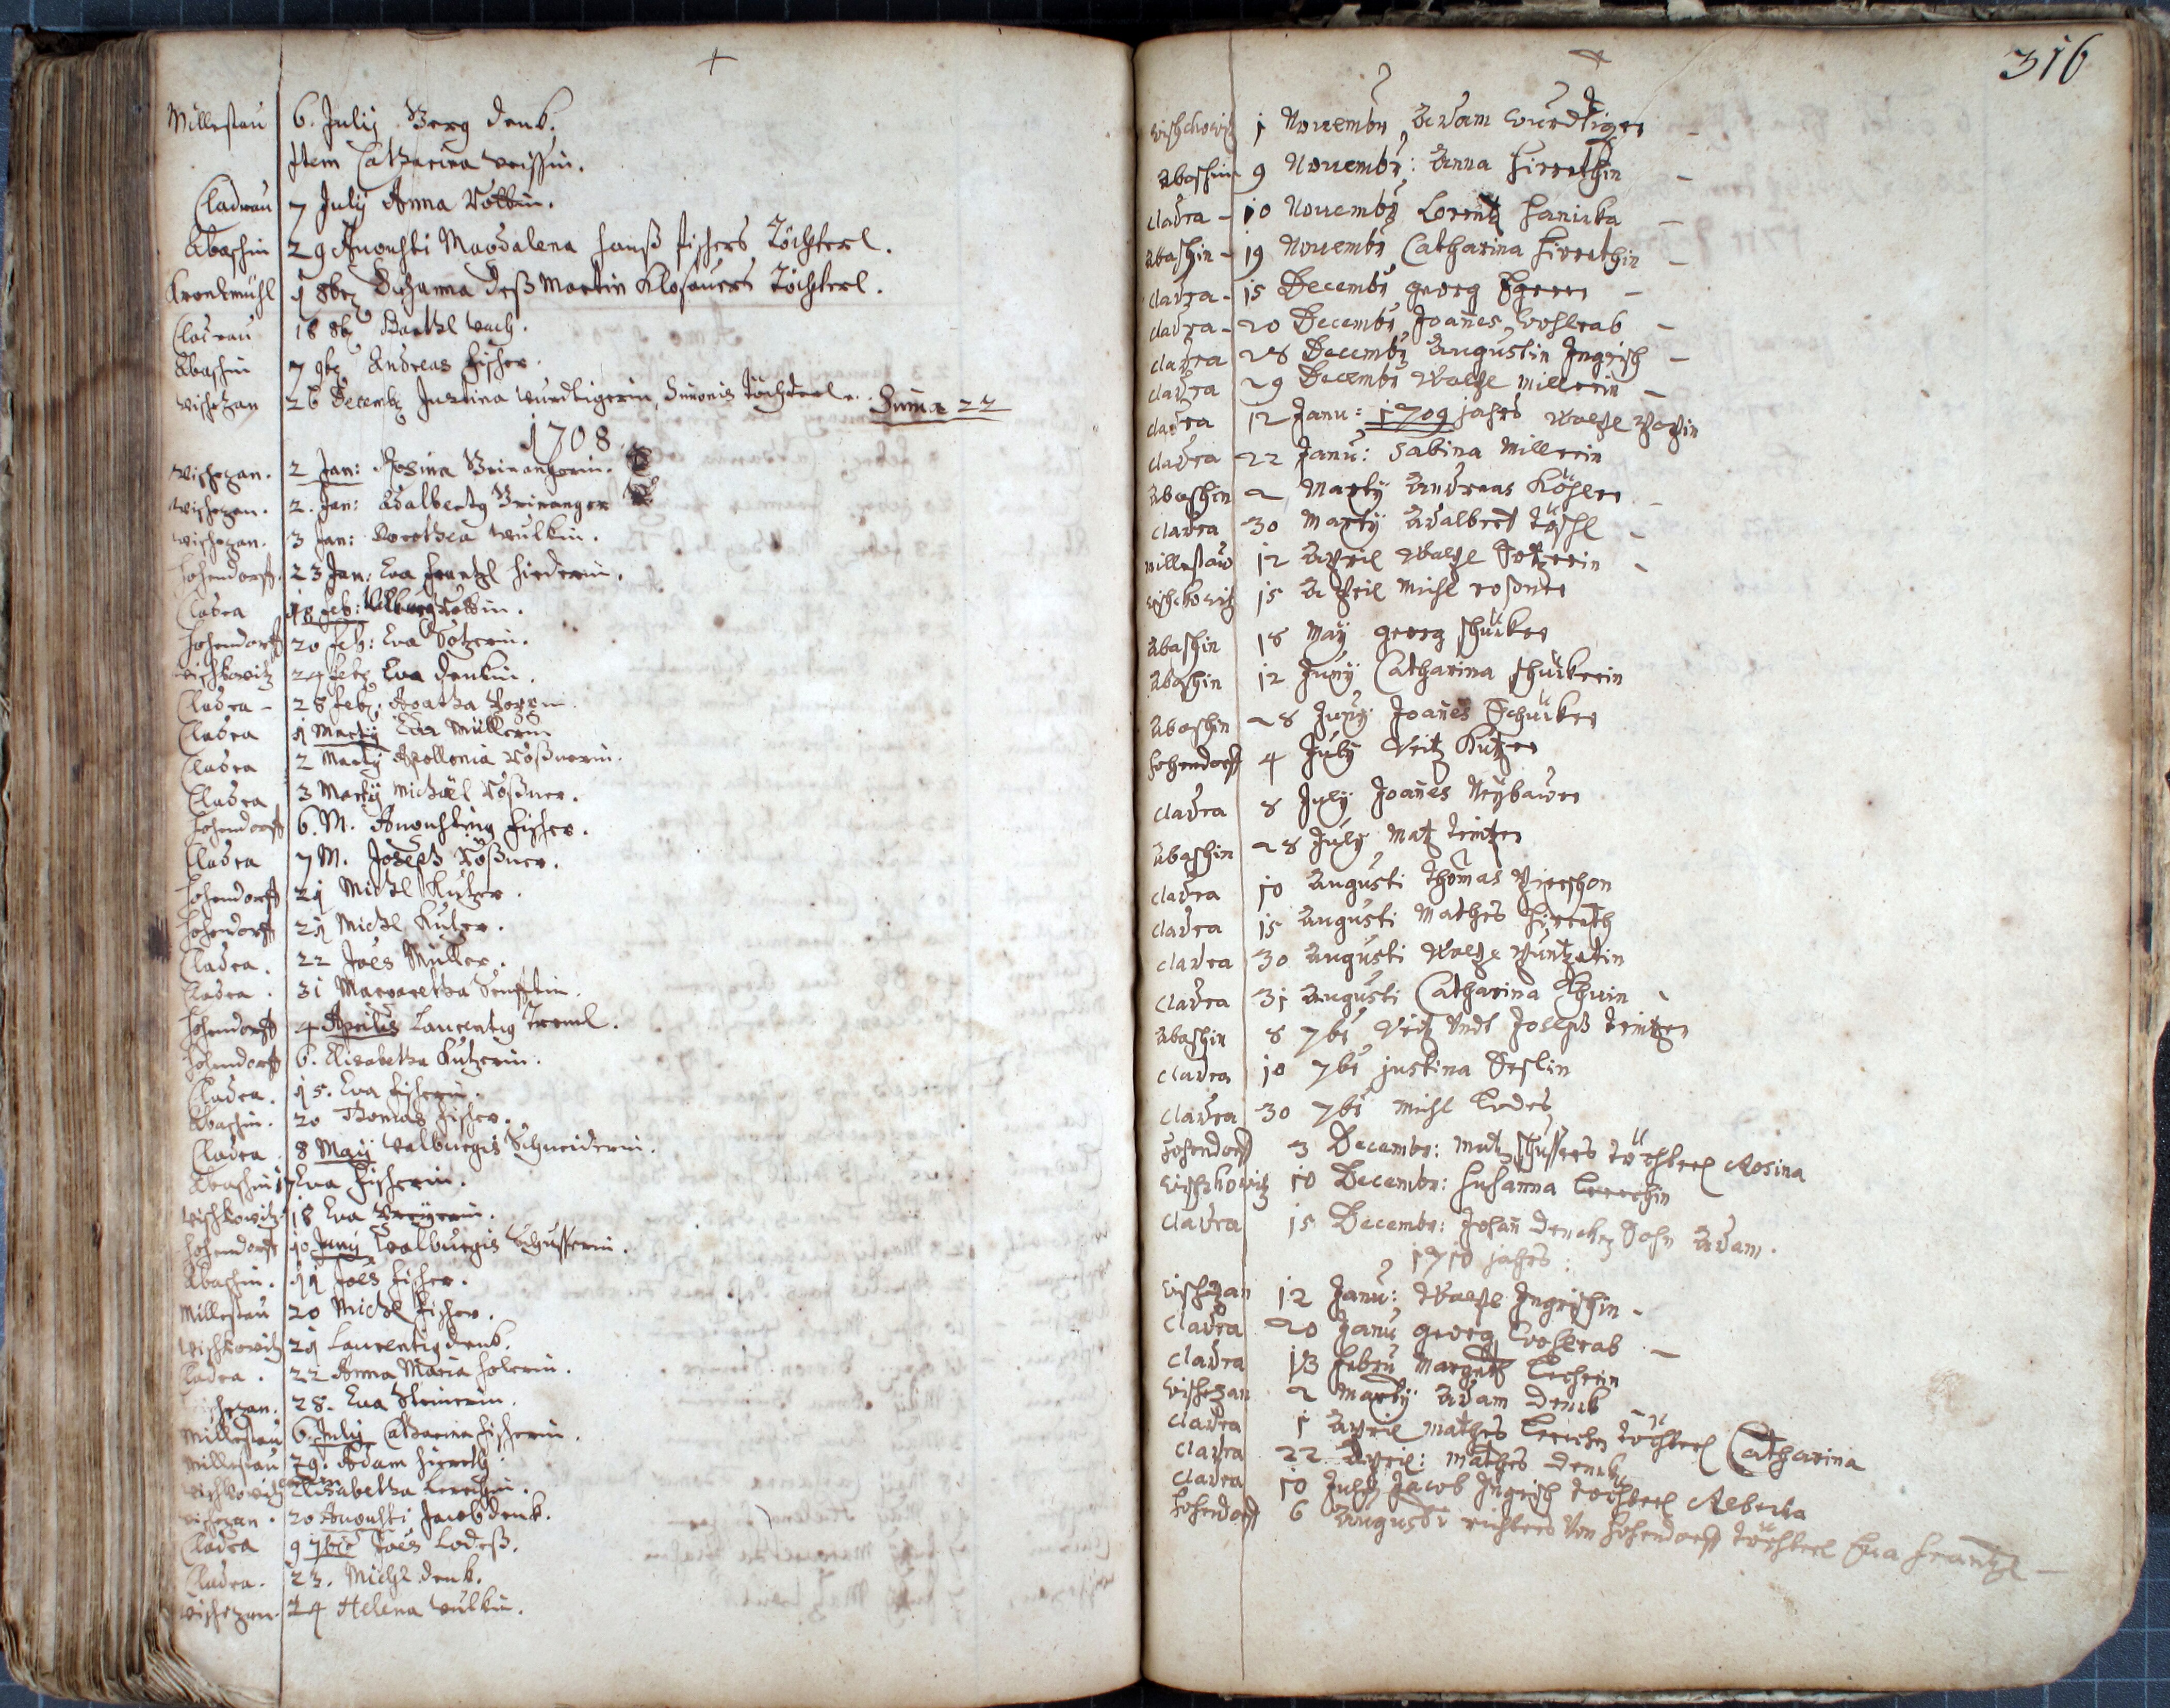 Millestau 6. July. Georg Denk.
Item Catharina
Cladrau 7 July Anna
Abaschin 29 Augusti Magdalena Hanß Fischers Töchterl.
Kronlmühl 1 8br Susanna deß Martin Klosauers Töchterl.
Cladrau 18 8br Barthl
Abaschin 7 9br Andreas Fischer.
Vischezan 26 Decembr Justina Wurdtigerin, Simonis Töchterl. Suma 22
1708
Vischezan. 2 Jan: Rosina
Vischezan. 2. Jan: Adalbertg
Vischezan. 3 Jan: Dorothea Wulkin.
Hohendorff. 23 Jan: Eva Frantzl
Cladra 18 Feb:
Hohendorff 20 Feb: Eva
Vischkowitz 24 Feb Eva Denkin.
Cladra - 28 Feb. Agatha
Cladra 1 Martij Eva Müllerin
Cladra 2 Martij Apollonia Roßnerin.
Cladra 3 Martij Michael Roßner.
Hohendorff 6. M. Augusting Fischer.
Cladra 7 M. Joseph Roßner.
Hohendorff 21 Michl Kutzer.
Hohendorff 21 Michl Kutzer.
Cladra. 22 Joes Müller.
Cladra. 31 Margaretha
Hohendorff 4 Aprilis Laurentig Treml.
Hohendorff 6. Elisabetha Kutzerin.
Cladra. 15. Eva Fischerin.
Abaschin. 20 Thomas Fischer.
Cladra. 8 Maij Walburgis Schneiderin.
Abaschin 17 Eva Fischerin.
Vischkowitz 18 Eva
Hohendorff 10 Junij Walburgis Schusserin.
Abaschin. 11 Joes Fischer.
Millestau 20 Michl Fischer.
Vischkowitz 21 Laurentig Denk.
Cladra. 22 Anna Maria
28. Eva Steinerin.
Millestau 6. July Catharina Fischerin.
Millestau 29. Adam Hirreth.
Vischkowitz Elisabetha Lerchin.
Vischezan. 20 Augusti Jacob Denk.
Cladra 9 7bris Joes Lodeß.
Cladra. 23. Michl Denk.
Vischezan. 24 Helena Wulkin.
316
Vischchowitz 1 Novembr Adam Wurdtiger -
Abaschin 9 Novembr: Anna Hirrethin -
Cladra - 10 Novembr Lorentz Hanirka -
Abaschin - 19 Novembr Catharina Hirrethin -
Cladra - 15 Decembr Georg -
Cladra - 20 Decembr Joannes Wohlrab -
Cladra 28 Decembr Augustin Ingrisch -
Cladra 29 Decembr Walpl Millerin -
Cladra 12 Janu: 1709 jahrs Walpl
Cladra 22 Janu: Sabina Millerin
Abaschin 2 Martij Andreas Köhler -
Cladra 30 Martij Adalbert Töschl -
Millestaw 12 April Walpl
Vischchowitz 15 April Michl Roßner
Abaschin 18 Maij Georg Schuker
Abaschin 12 Junij Catharina Schukerin
Abaschin 28 Junij Joannes Schuker
Hohendorff 4 July Veitz Kutzer
Cladra 8 July Joannes Neybawer
Abaschin 28 July Matz
Cladra 10 Augusti Thomas
Cladra 15 Augusti Mathes Hirreth
Cladra 30 Augusti Walpl
Cladra 31 Augusti Catharina
Abaschin 8 7br Veitz Undt Joseph
Cladra 10 7br Justina
Cladra 30 7br Michl Lodes
Hohendorff 3 Decembr: Matz Schussers Töchterl Rosina
Vischkowitz 10 Decembr: Susanna Lerchin
Cladra 15 Decembr: Johann Dencken Sohn Adam.
1710 jahrs:
Vischezan 12 Janu: Walpl Ingrischin -
Cladra 20 Janu Georg Wohlrab -
Cladra 13 Febru Margreth Lerchin
Vischezan 2 Martij Adam Denck
Cladra 1 April Mathes Lerchen Töchterl Catharina
Cladra 22 April: Mathes Denck
Cladra 10 July Jacob Ingrisch Töchterl Rebecka
Hohendorff 6 Augusti Richters Von Hohendorff Töchterl Eva Frantzl -